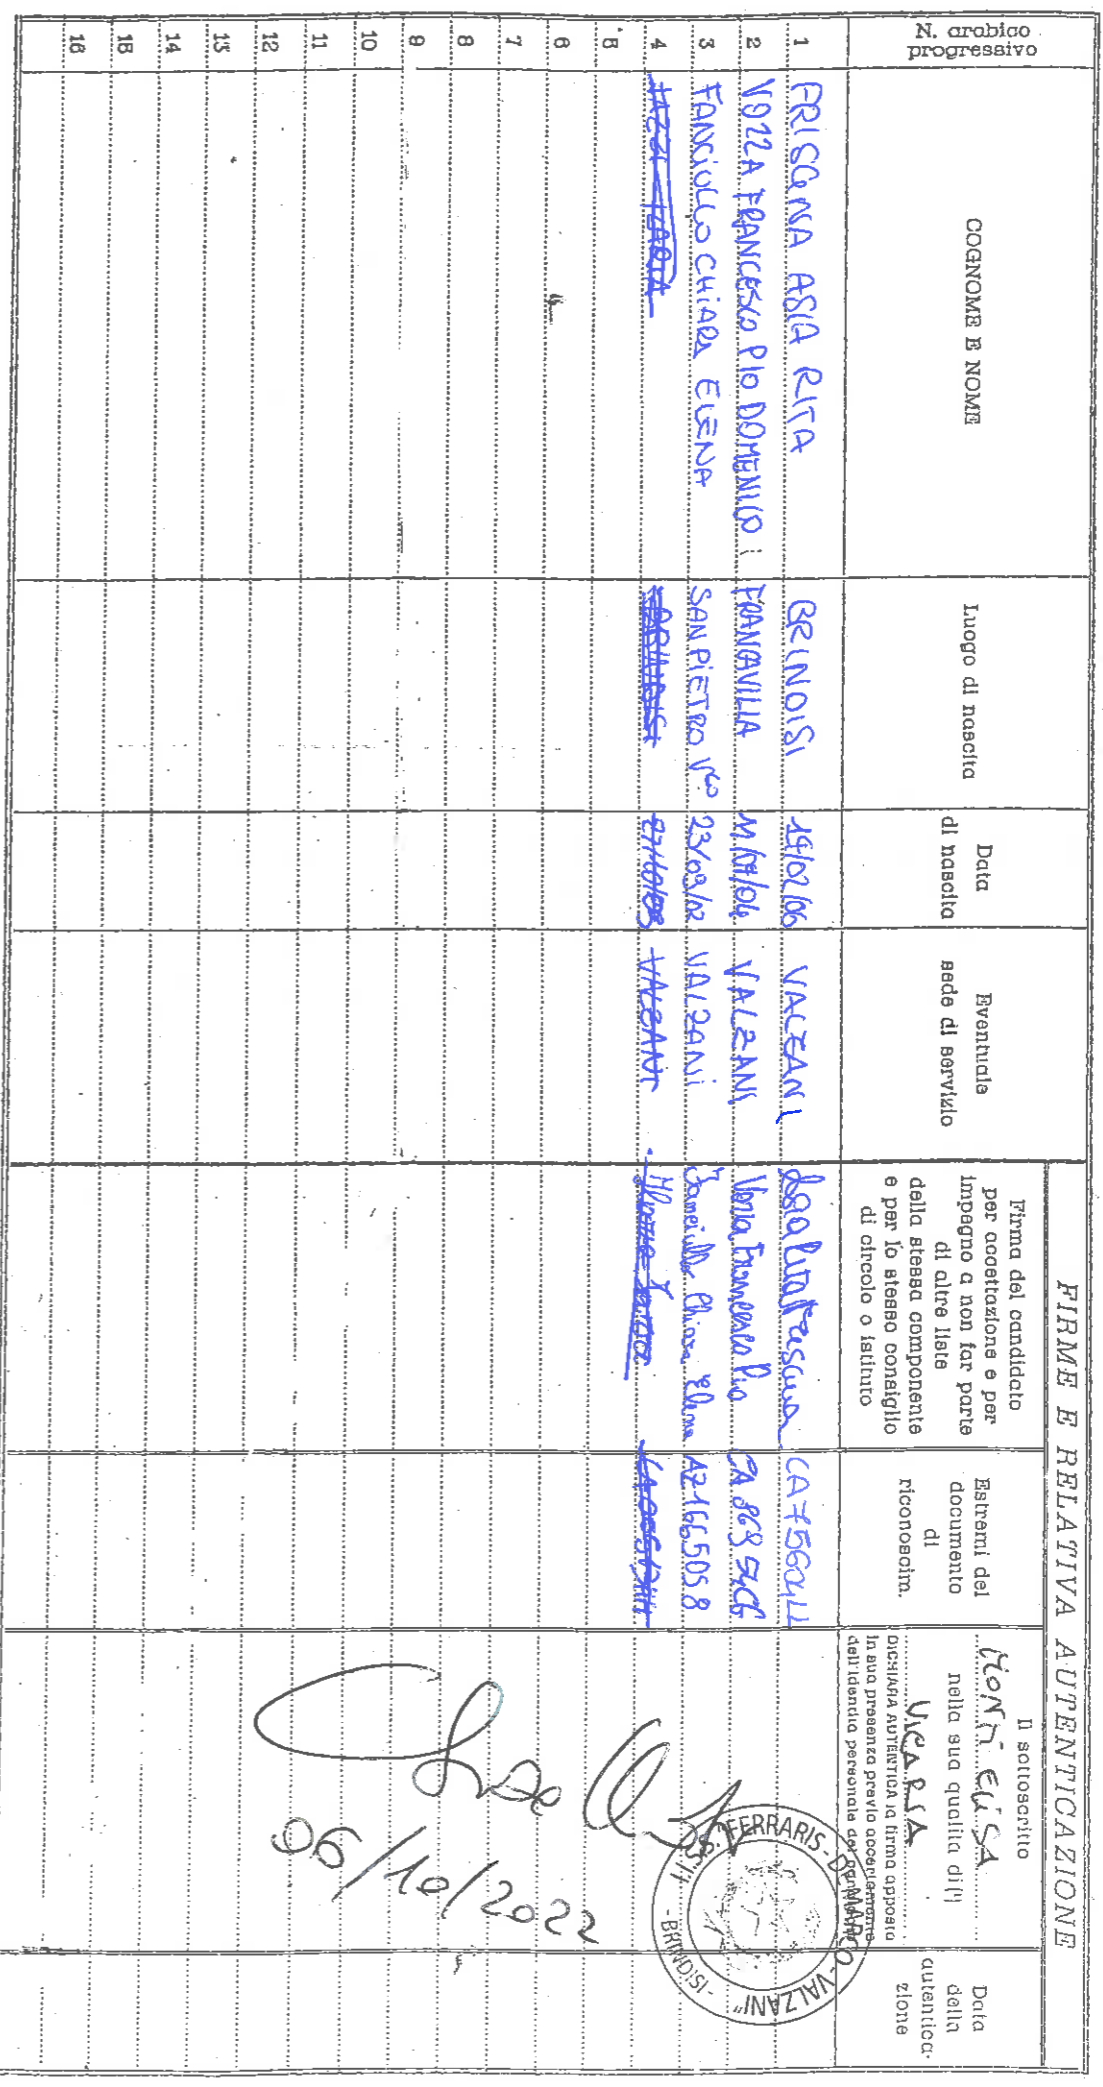 FIRME E RELATIVA AUTENTICAZIONE
N. arabico progressivo
COGNOME E NOME
Luogo di nascita
Data
di nascita
Eventuale
sede di servizio
Firma del candidato
per accettazione e per
impegno a non far parte
di altre liste
della stessa componente
e per lo stesso consiglio
di circolo o istituto
Estremi del
documento
di
riconoscim.
Il sottoscritto
MONTI ELISA
nella sua qualità di (¹)
VICARIA
DICHIARA AUTENTICA la firma apposta
in sua presenza previo accertamento
dell'identità personale del
Data
della
autentica-
zione
1 PRISCIANA ASIA RITA BRINDISI 19/02/06 VALZANI
2 VOZZA FRANCESCO PIO DOMENICO FRANCAVILLA VALZANI Vozza Francesco Pio
3 FANCIULLO CHIARA ELENA SAN PIETRO Vco VALZANI Fanciullo Chiara Elena AZ1665058
4 BRINDISI VALZANI
5
6
7
8
9
10
11
12
13
14
15
16
06/10/2022
I.I.S.S. "FERRARIS - DE MARCO - VALZANI"
- BRINDISI -